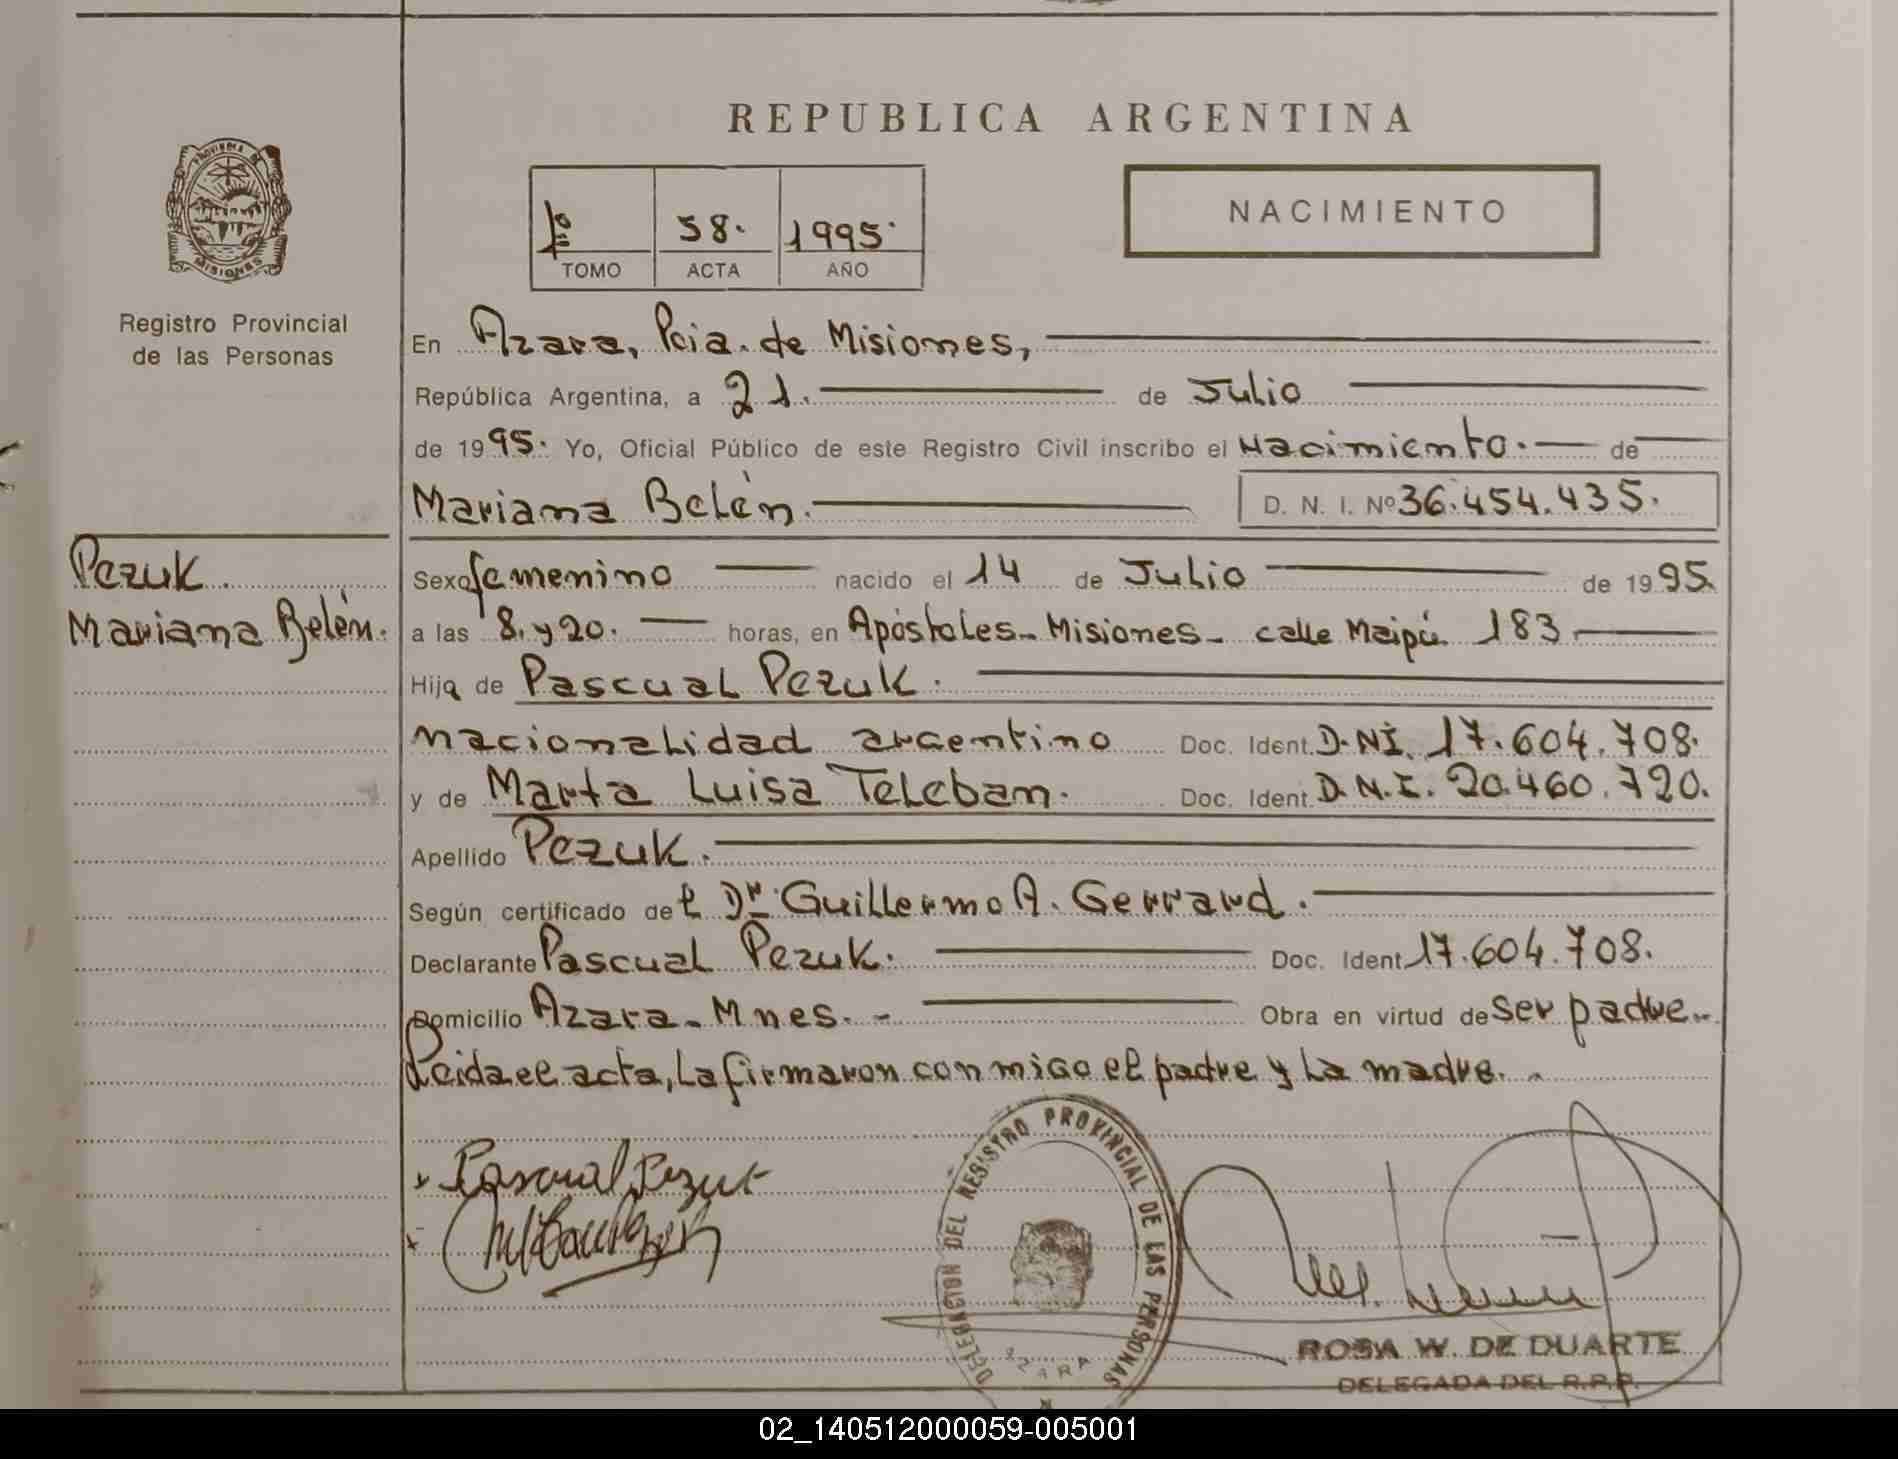 REPUBLICA ARGENTINA
PROVINCIA DE
MISIONES
Registro Provincial
de las Personas
1º 58. 1995.
TOMO ACTA AÑO
NACIMIENTO
En Azara, Pcia. de Misiones,
República Argentina, a 21. de Julio
de 1995. Yo, Oficial Público de este Registro Civil inscribo el Nacimiento. de
Mariana Belén. D. N. I. Nº 36.454.435.
Pezuk.
Mariana Belén.
Sexo femenino nacido el 14 de Julio de 1995.
a las 8. y 20. horas, en Apóstoles - Misiones - calle Maipú 183
Hija de Pascual Pezuk.
nacionalidad argentino Doc. Ident. D.N.I. 17.604.708.
y de Marta Luisa Teleban. Doc. Ident. D.N.I. 20.460.720.
Apellido Pezuk.
Según certificado del Dr. Guillermo A. Gerrard.
Declarante Pascual Pezuk. Doc. Ident 17.604.708.
Domicilio Azara - Mnes. - Obra en virtud de ser padre.
Leida el acta, la firmaron conmigo el padre y la madre.
Pascual Pezuk
DELEGACION DEL REGISTRO PROVINCIAL DE LAS PERSONAS
AZARA
ROSA W. DE DUARTE
DELEGADA DEL R.P.P.
02_140512000059-005001